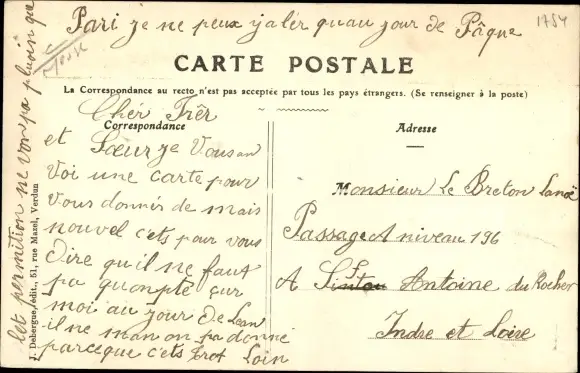 Pari je ne peux y alér quau jour de Pâque
1754
CARTE POSTALE
La Correspondance au recto n'est pas acceptée par tous les pays étrangers. (Se renseigner à la poste)
Correspondance
Adresse
Chér Frêr
et Sœur je Vousan
Voi une carte pour
Vous donnér de mais
nouvel c'ets pour vous
Dire qu il ne faut
pa quonpte sur
moi au jour De Lan
il ne man on pa donne
parceque c'ets trot Loin
let permition ne von pa pluoin que
Monsieur Le Breton Lanoë
Passage A niveau 196
A St Antoine du Rocher
Indre et Loire
J. Debergue, édit., 51, rue Mazel, Verdun